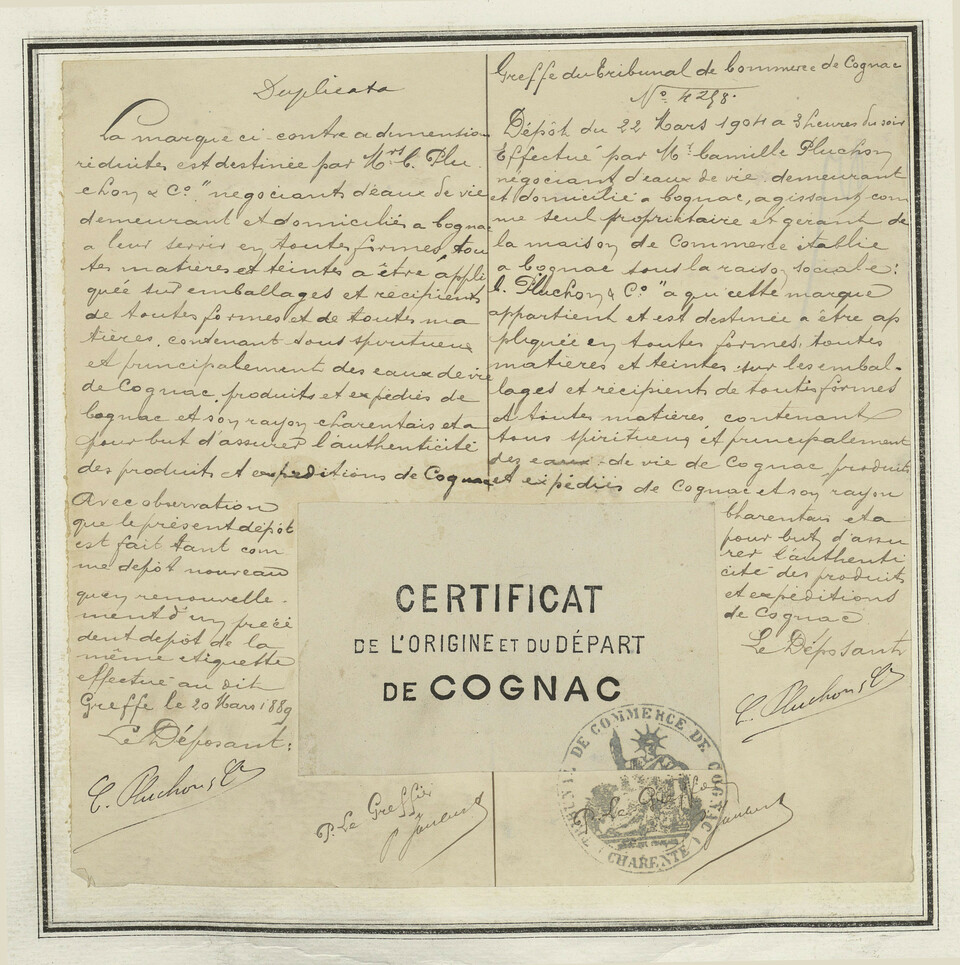 Duplicata
La marque ci-contre a dimension
réduite, est destinée par Mrs C. Plu
chon & Co." négociants d'eaux de vie
demeurant et domiciliés a Cognac
a leur servir en toutes formes, tou
tes matières et teintes a être appli
quée sur emballages et récipients
de toutes formes et de toutes ma
tières, contenant tous spiritueux
et principalement des eaux de vie
de Cognac, produits et expédiés de
Cognac et son rayon charentais et a
pour but d'assurer l'authenticité
des produits et expéditions de Cognac
Avec observation
que le présent dépôt
est fait tant com
me dépôt nouveau
qu'en renouvelle-
ment d'un précé
dent dépôt de la
même etiquette
effectué au dit
Greffe le 20 Mars 1889
Le Déposant:
C. Pluchon & Co
P. Le Greffier
Greffe du Tribunal de Commerce de Cognac
No. 4258.
Dépôt du 22 Mars 1904 a 3 heures du soir
Effectué par Mr. Camille Pluchon
négociant d'eaux de vie, demeurant
et domicilié a Cognac, agissant com
me seul propriétaire et gérant de
la maison de Commerce établie
a Cognac sous la raison sociale:
C. Pluchon & Co." a qui cette marque
appartient et est destinée a être ap
pliquée en toutes formes, toutes
matières et teintes sur les embal-
lages et récipients de toutes formes
et toutes matières, contenant
tous spiritueux et principalement
des eaux-de vie de Cognac produits
et expédiés de Cognac et son rayon
Charentais et a
pour but d'assu
rer l'authenti
cité des produits
et expéditions
de Cognac
Le Déposant
C. Pluchon & Co
CERTIFICAT
DE L'ORIGINE ET DU DÉPART
DE COGNAC
TRIBUNAL DE COMMERCE DE COGNAC
(CHARENTE)